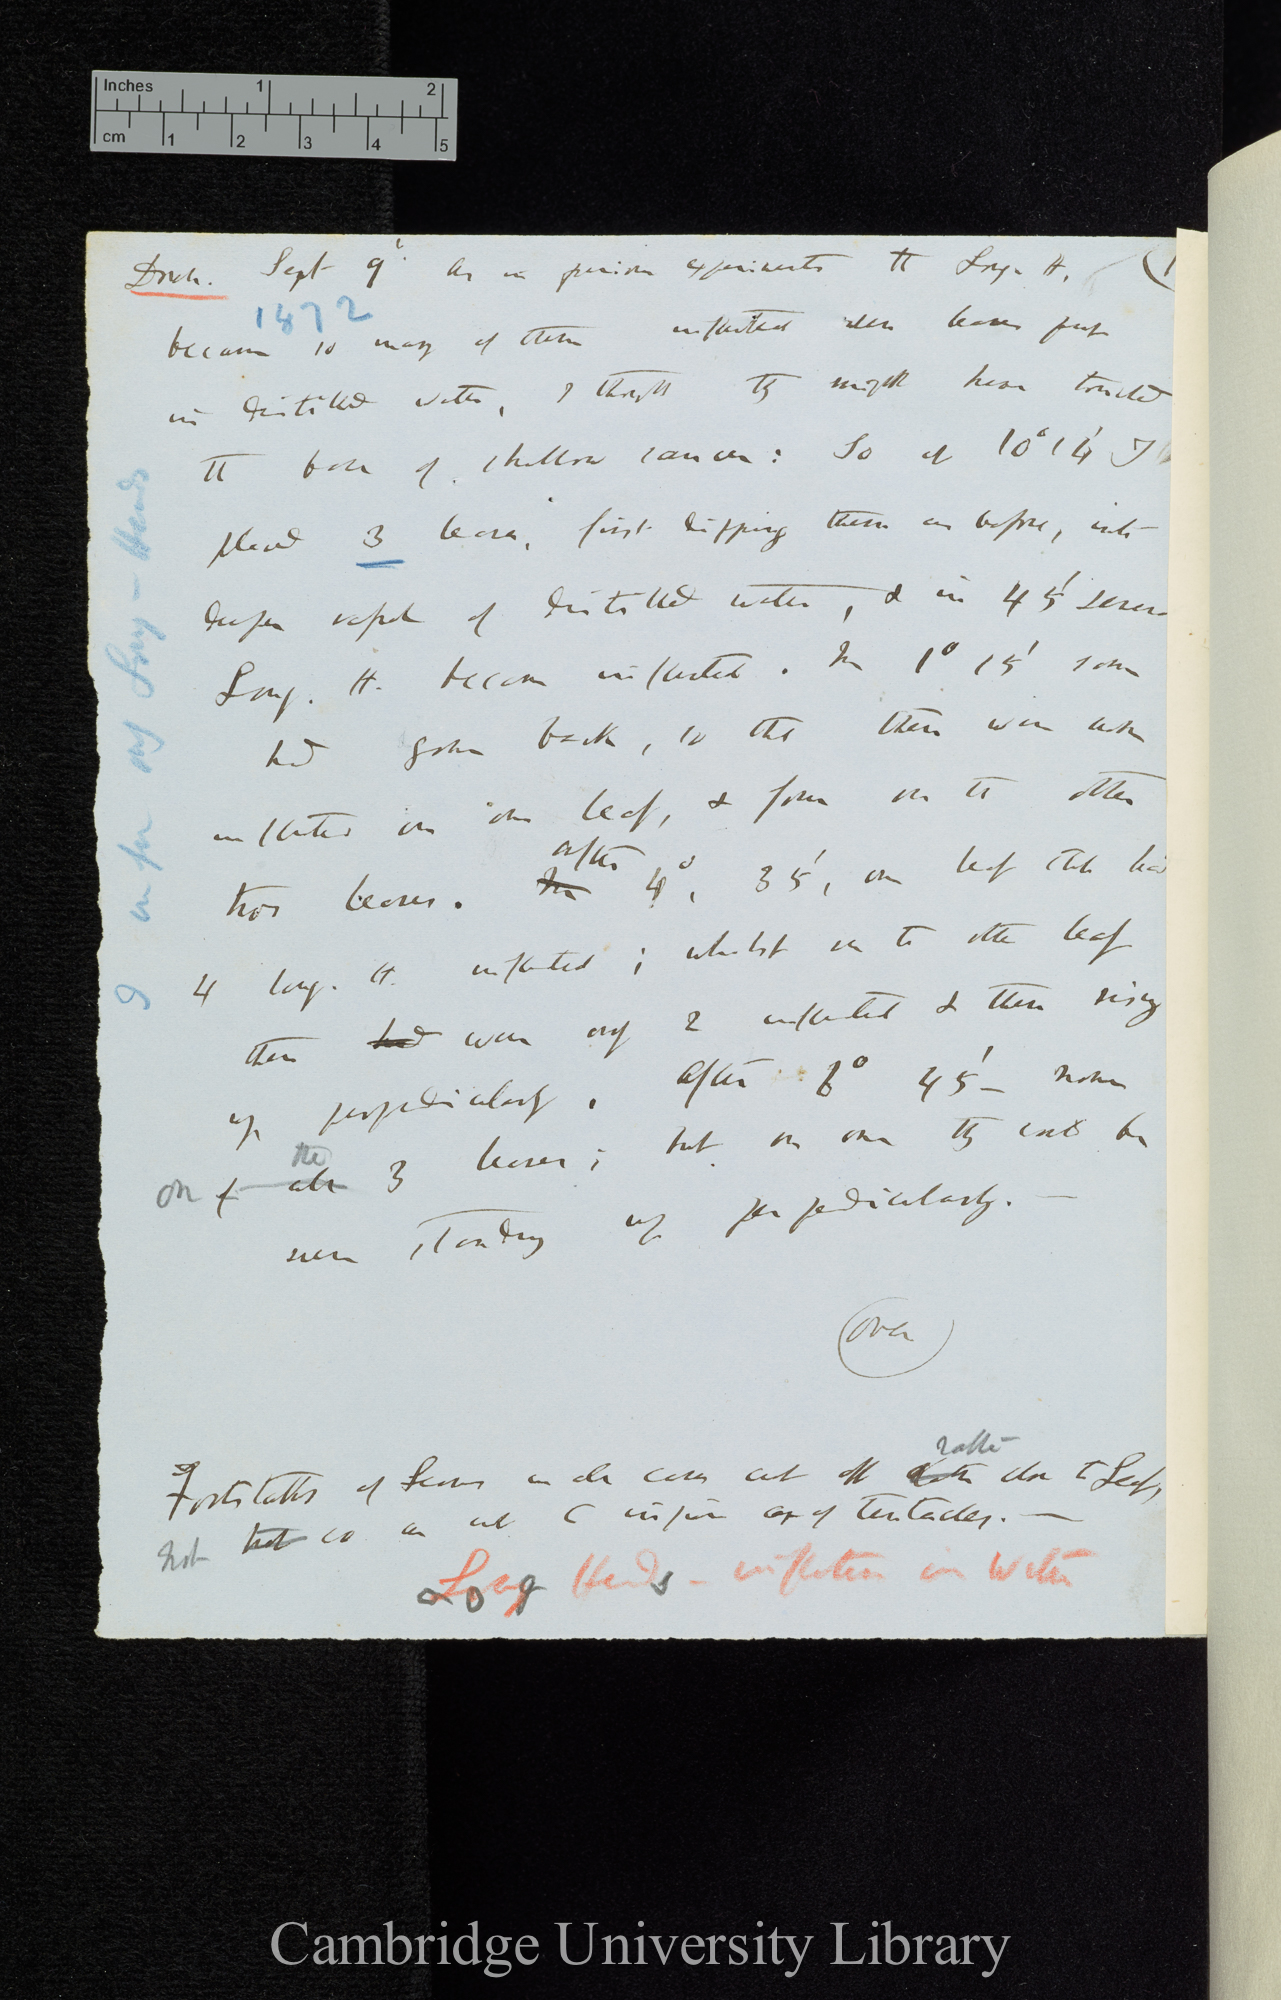 Inches 1 2
cm 1 2 3 4 5
Dros. Sept 9' As in previous experiments the Long. H. (1
1872
became so many of them inflected when leaves put
in distilled water, I thought they might have touched
the base of shallow saucer: So at 10° 14' I
placed 3 leaves, first dipping them as before, into
deeper vessel of distilled water, & in 45' several
Long. H. became inflected. In 1° 15' some
had gone back, so that there were
inflected on one leaf, & four on the other
two leaves. In after 4°, 35', one leaf still had
4 long. H. inflected; whilst on the other leaf
there had were only 2 inflected & these rising
up perpendicularly. After 6° 45' – none
on f all the 3 leaves; but on one they could be
seen standing up perpendicularly. —
I am for only Long – Heads
(over)
Footstalks of Leaves in all cases cut off rather close to Leaf,
not but so as not to injure any of tentacles. —
Long Heads – inflection in Water
Cambridge University Library